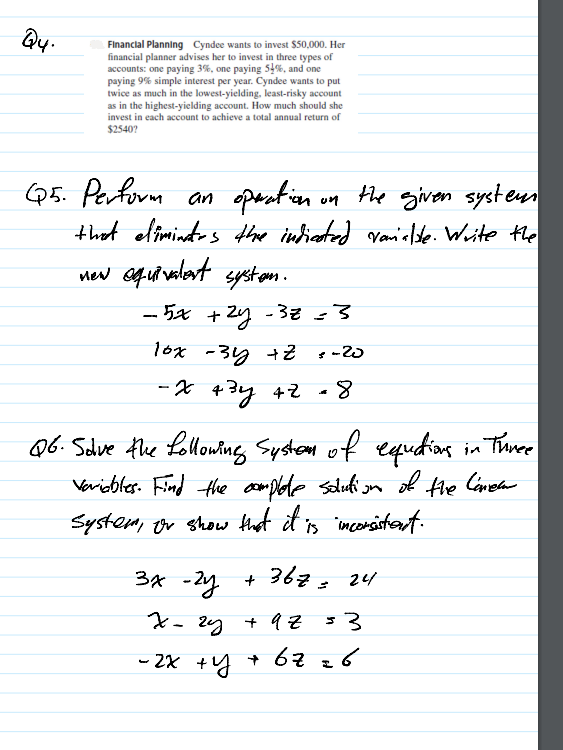 Q4.
Financial Planning Cyndee wants to invest $50,000. Her
financial planner advises her to invest in three types of
accounts: one paying 3%, one paying 5½%, and one
paying 9% simple interest per year. Cyndee wants to put
twice as much in the lowest-yielding, least-risky account
as in the highest-yielding account. How much should she
invest in each account to achieve a total annual return of
$2540?
Q5. Perform an operation on the given system
that eliminates the indicated variable. Write the
new equivalent system.
-5x + 2y - 3z = 3
10x - 3y + z = -20
-x + 3y + z = 8
Q6. Solve the following system of equations in Three
Variables. Find the complete solution of the linear
system, or show that it is inconsistent.
3x - 2y + 36z = 24
x - 2y + 9z = 3
-2x + y + 6z = 6